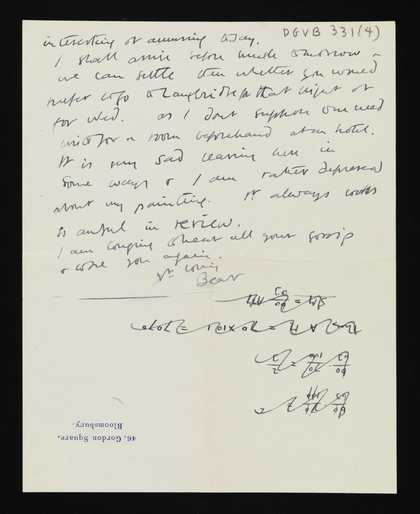 DGVB 331(4)
interesting or amusing today.
I shall arrive before lunch tomorrow &
we can settle then whether you would
prefer to go to Langbridge that night or
for Wed. as I dont suppose one need
write for a room beforehand at an hotel.
It is very sad leaving here in
some ways & I am rather depressed
about my painting. It always looks
so awful in review.
I am longing to hear all your gossip
& to see you again.
Yr loving
Bear
46, Gordon Square,
Bloomsbury.